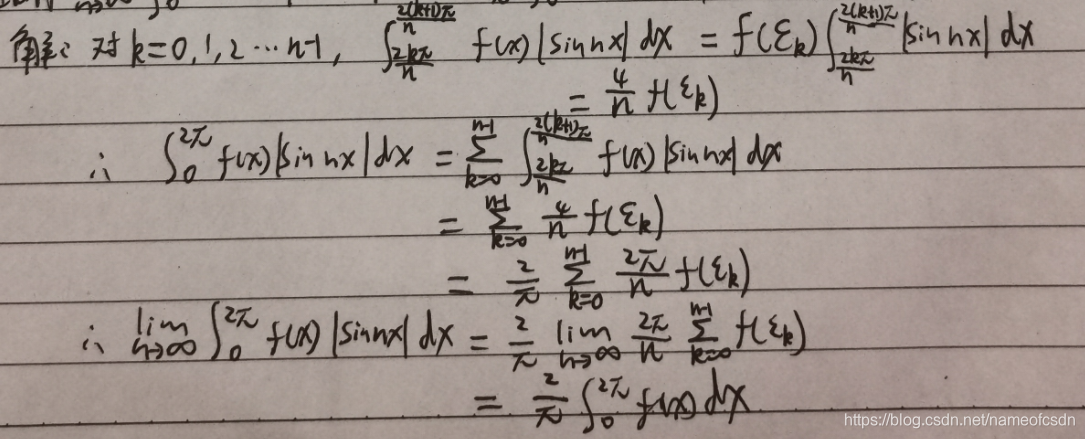 解: 对 k=0,1,2 ⋯ n-1, ∫_{2kπ/n}^{2(k+1)π/n} f(x) |sin nx| dx = f(ξ_k) ∫_{2kπ/n}^{2(k+1)π/n} |sin nx| dx
= 4/n f(ξ_k)
∴ ∫_0^{2π} f(x) |sin nx| dx = ∑_{k=0}^{n-1} ∫_{2kπ/n}^{2(k+1)π/n} f(x) |sin nx| dx
= ∑_{k=0}^{n-1} 4/n f(ξ_k)
= 2/π ∑_{k=0}^{n-1} 2π/n f(ξ_k)
∴ lim_{n→∞} ∫_0^{2π} f(x) |sin nx| dx = 2/π lim_{n→∞} 2π/n ∑_{k=0}^{n-1} f(ξ_k)
= 2/π ∫_0^{2π} f(x) dx
https://blog.csdn.net/nameofcsdn